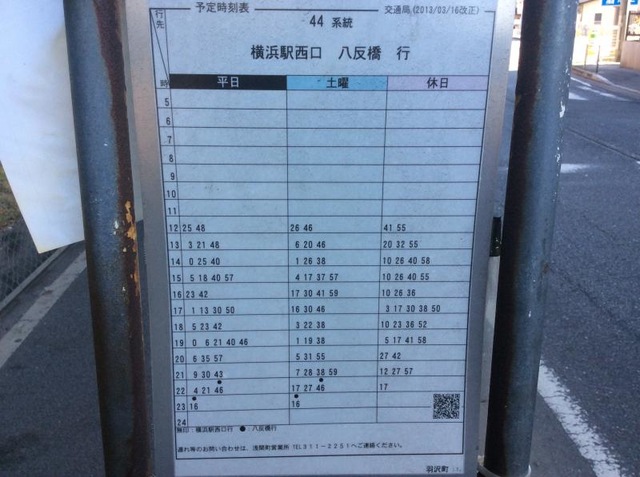 予定時刻表 交通局(2013/03/16改正)
行先 44 系統
横浜駅西口 八反橋 行
時 平日 土曜 休日
5
6
7
8
9
10
11
12 25 48 26 46 41 55
13 3 21 48 6 20 46 20 32 55
14 0 25 40 1 26 38 10 26 40 58
15 5 18 40 57 4 17 37 57 10 26 40 55
16 23 42 17 30 41 59 10 26 36
17 1 13 30 50 16 30 46 3 17 30 38 50
18 5 23 42 3 22 38 10 23 36 52
19 0 6 21 40 46 1 19 38 5 17 41 58
20 6 35 57 5 31 55 27 42
21 9 30 43 7 28 38 59 12 27 57
22 4 21 46 17 27 46 17
23 16 16
24
無印:横浜駅西口行 ●:八反橋行
遅れ等のお問い合わせは、浅間町営業所 TEL311-2251へご連絡ください。
羽沢町